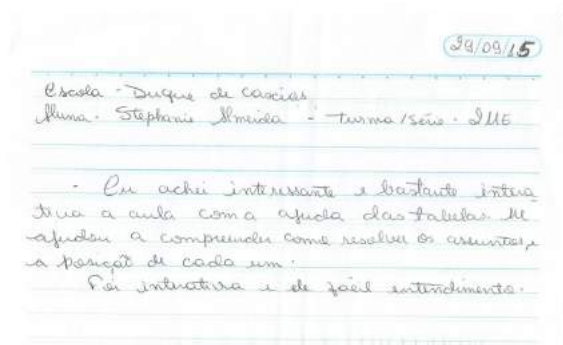 29/09/15
Escola - Duque de caxias
Aluna. Stephanie Almeida - turma/série. 2ME
- Eu achei interessante e bastante intera
tiva a aula com a ajuda das tabelas me
ajudou a compreender como resolver os assuntos, e
a posição de cada um.
Foi interativa e de fácil entendimento.